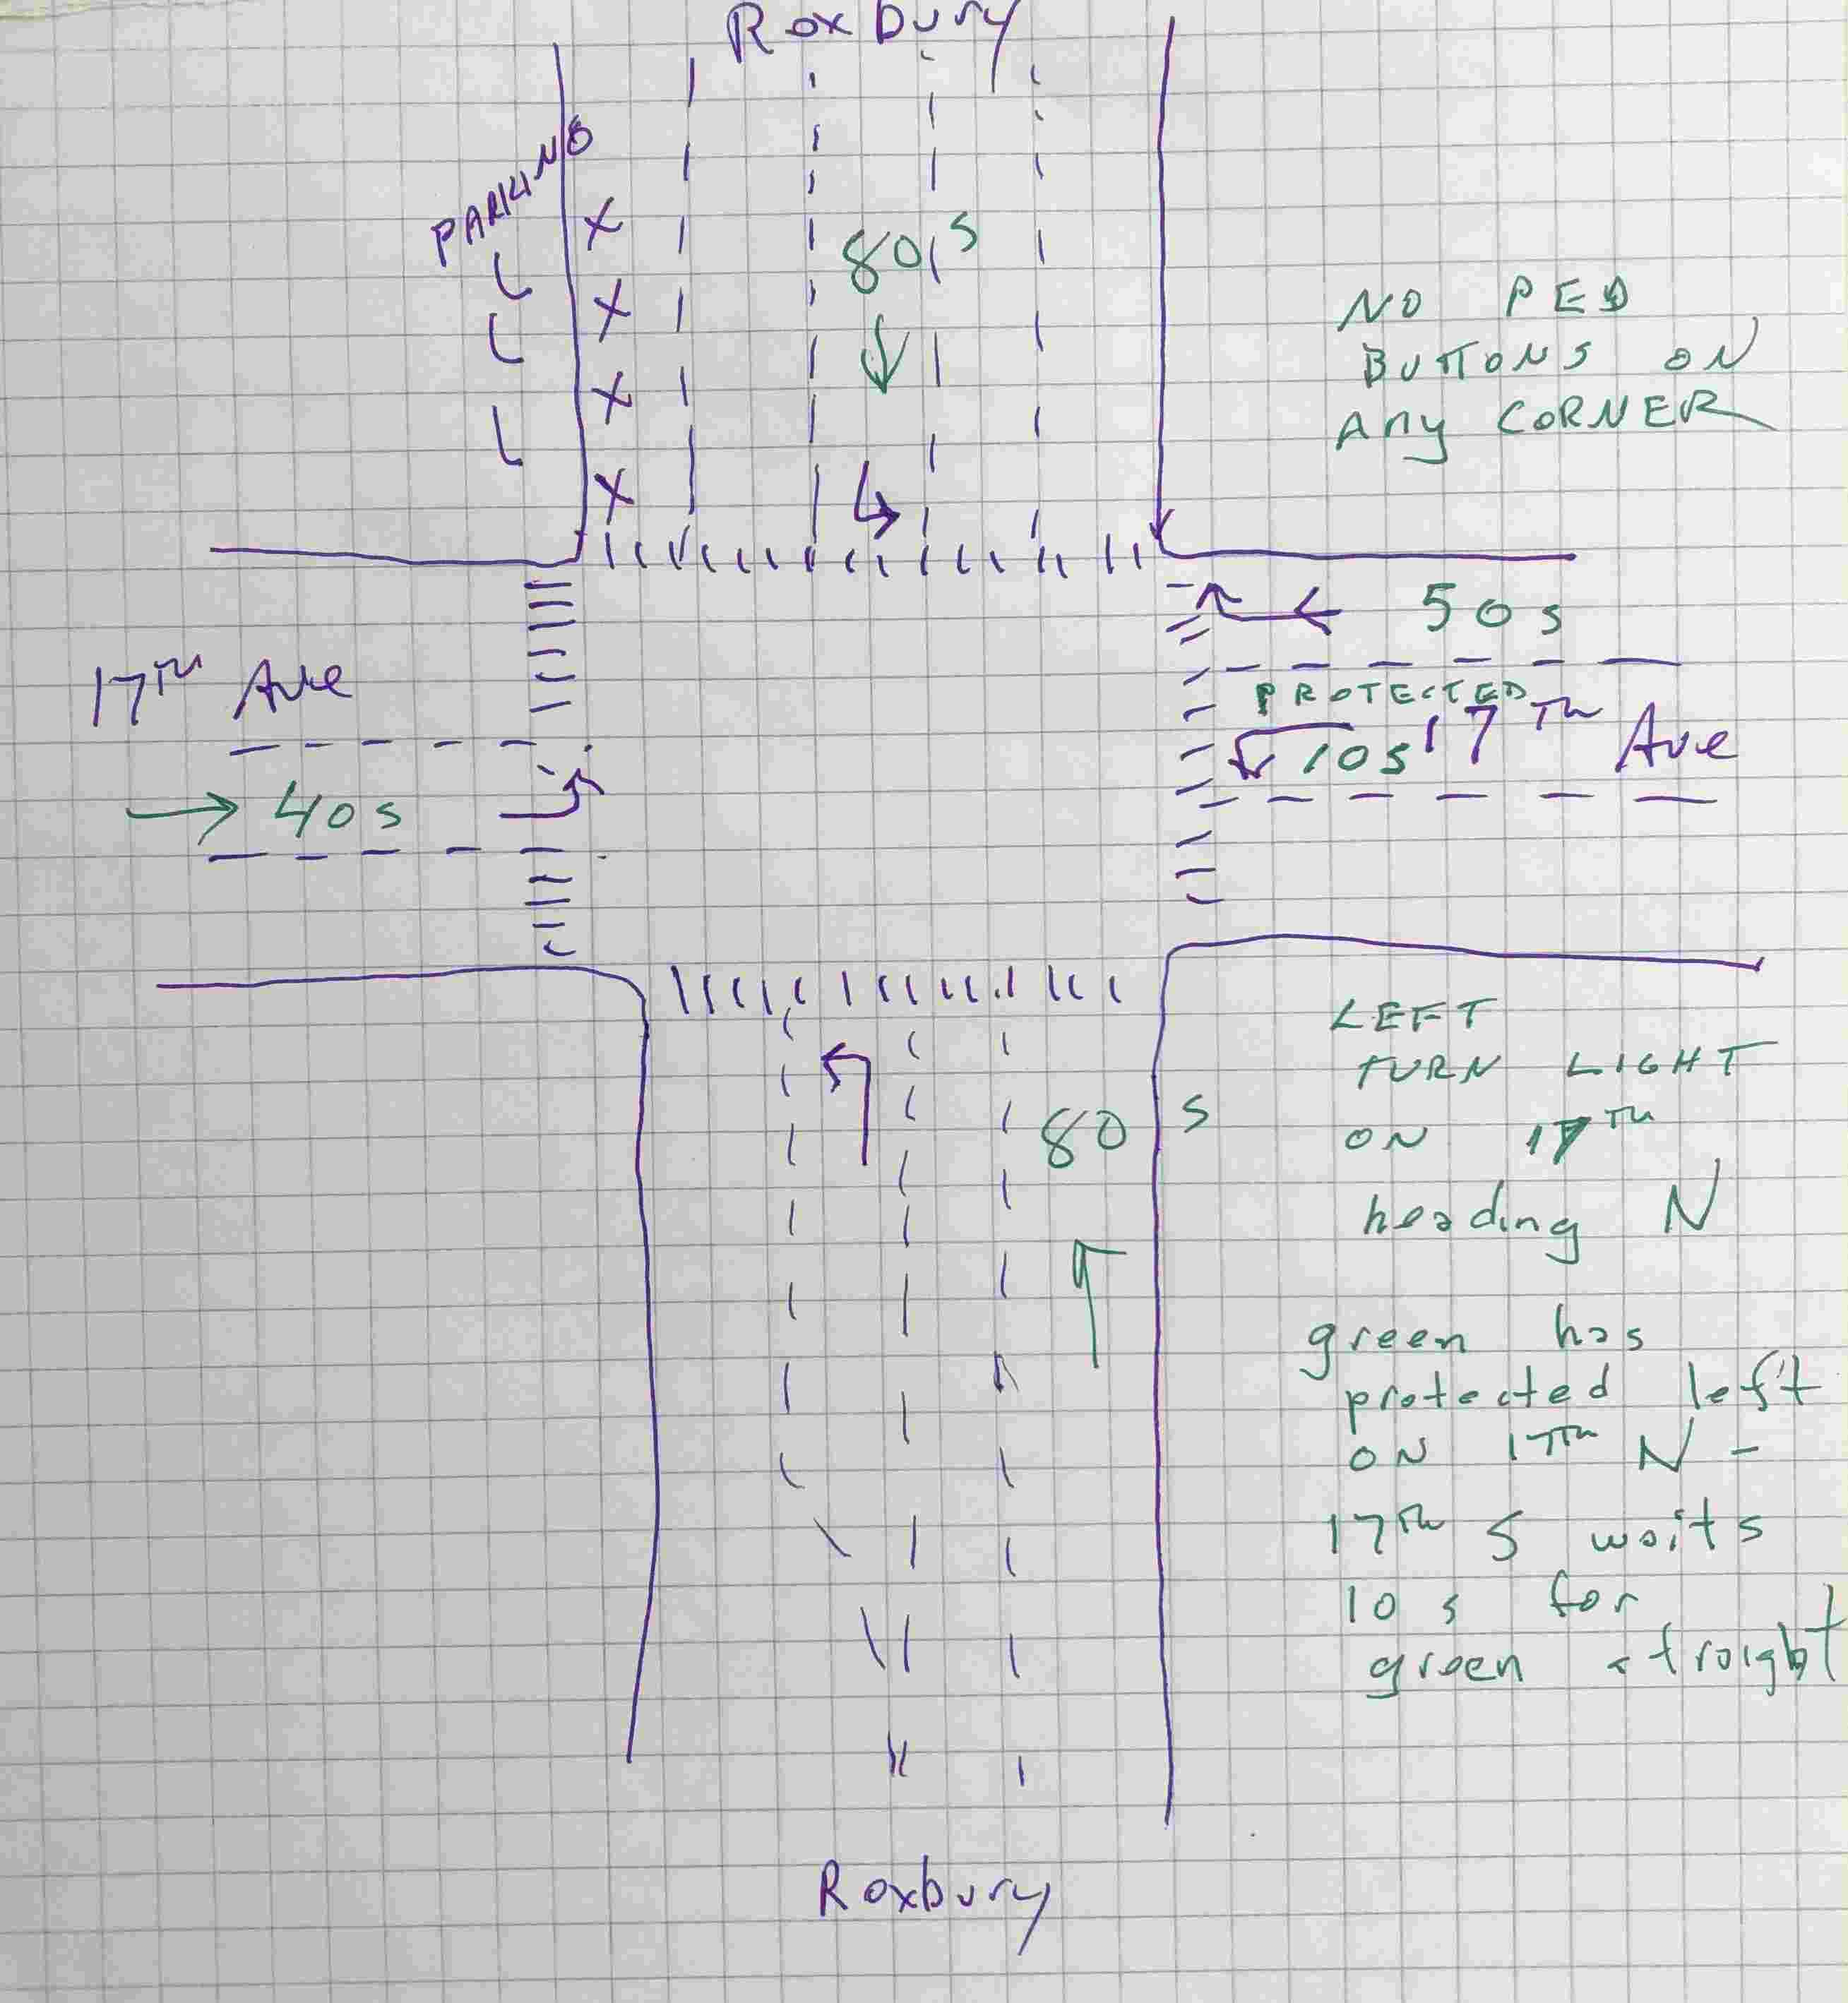 Roxbury
PARKING
80 s
NO PED
BUTTONS ON
ANY CORNER
50 s
17TH Ave
PROTECTED
10s
17TH Ave
40s
LEFT
TURN LIGHT
ON 17TH
heading N
80 s
green has
protected left
ON 17TH N -
17TH S waits
10 s for
green straight
Roxbury